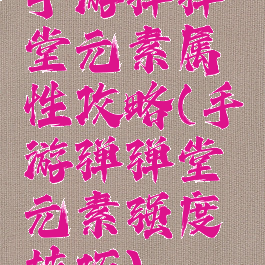 手游弹弹
堂元素属
性攻略(手
游弹弹堂
元素强度
技巧)